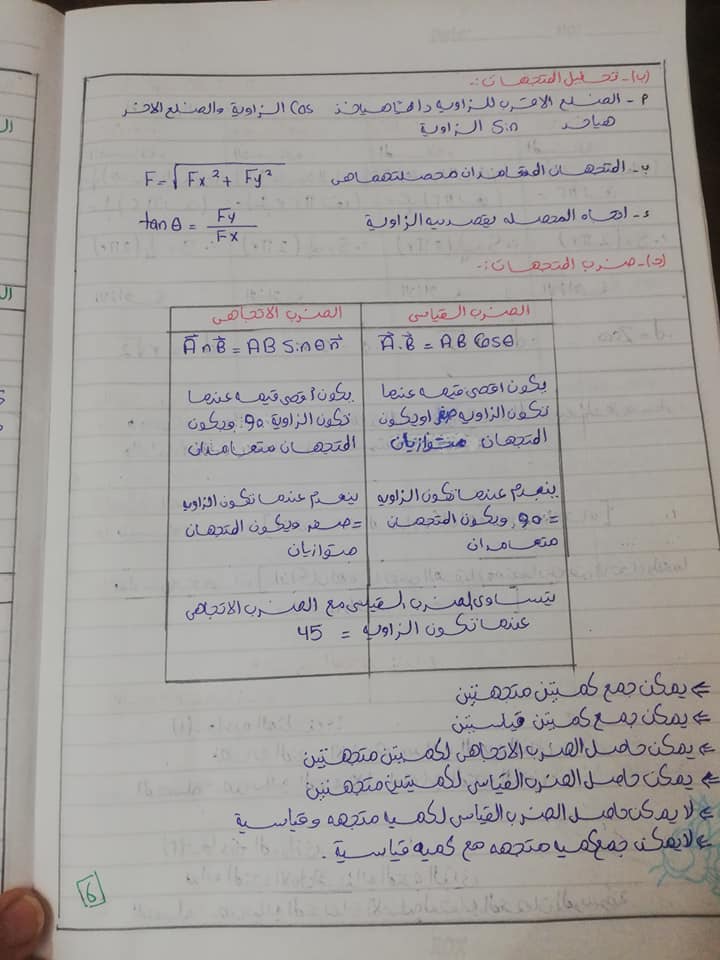 (ب)- تحليل المتجهات :-
م- الضلع الاقرب للزاوية دائما هياخذ Cos الزاوية والضلع الاخر
هياخد Sin الزاوية
ب- المتجهان المتعامدان محصلتهما هى F = √Fx² + Fy²
ء- اتجاه المحصله يقصد بيه الزاوية tan θ = Fy / Fx
(ج)- ضرب المتجهات :-
الضرب القياسى
A⃗.B⃗ = AB Cosθ
يكون اقصى قيمه عندما
تكون الزاويه صفر او يكون
المتجهان متوازيان
ينعدم عندما تكون الزاويه
=90 ويكون المتجهان
متعامدان
الضرب الاتجاهى
A⃗n B⃗ = AB Sinθ n⃗
يكون اقصى قيمه عندما
تكون الزاوية 90 ويكون
المتجهان متعامدان
ينعدم عندما تكون الزاويه
=صفر ويكون المتجهان
متوازيان
يتساوى الضرب القياسى مع الضرب الاتجاهى
عندما تكون الزاويه = 45
⇐ يمكن جمع كميتين متجهتين
⇐ يمكن جمع كميتين قياسيتين
⇐ يمكن حاصل الضرب الاتجاهى لكميتين متجهتين
⇐ يمكن حاصل الضرب القياسى لكميتين متجهتين
⇐ لا يمكن حاصل الضرب القياسى لكميه متجهه وقياسية
⇐ لا يمكن جمع كميه متجهه مع كميه قياسية .
6